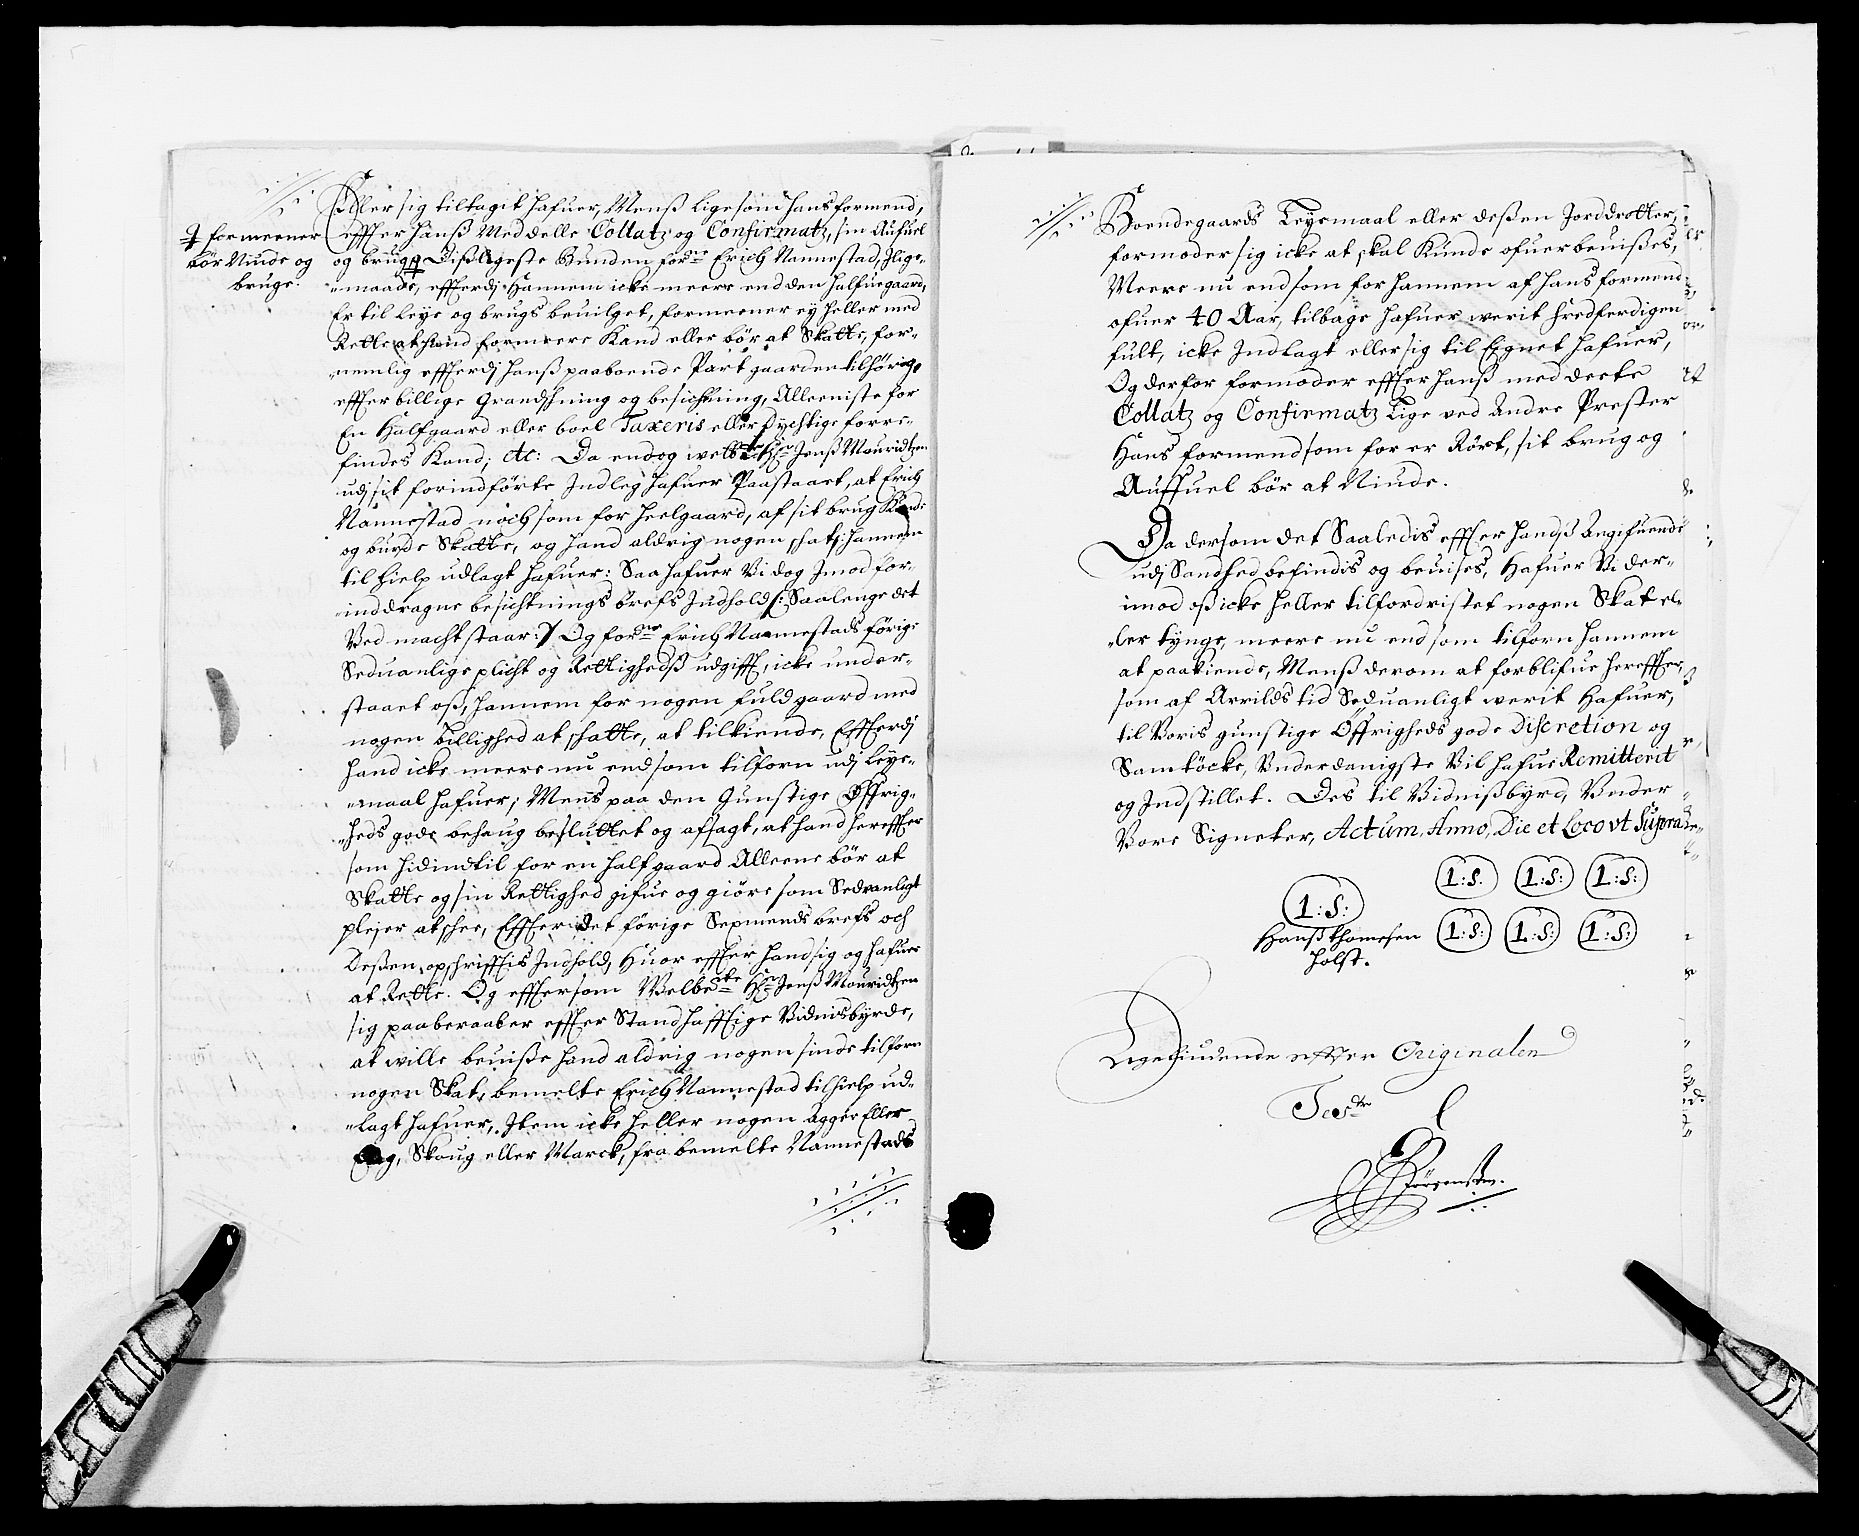 Eller sig tiltagit hafuer, Menß Lige som hans formend,
effter hanß Meddelte Collatz og Confirmatz, sin Aufuel
og bruge ‡ Dißligeste Bunden forne Erich Nannestad, Ilige-
‡ formeener
bör Niude og
bruge.
maade, effterdj Hannem icke meere end den halfue gaard,
Er til Leye og brugs beuilget, formeener ey heller med
Rette at hand for meere Kand eller bör at Skatte, for-
nemlig effterdj hanß paaboende Part gaarden tilhörig,
effter billige Grandskning og besichtning, Alleeniste for
En Halfgaard eller boel Taxeris eller dychtige forre-
findes Kand; etc: Da endog welbte Hr Jenß Mouridtzen
udj sit forindförte Indleg hafuer Paastaaet, at Erich
Nannestad noch som for heelgaard, af sit brug Kunde
og burde Skatte, og hand aldrig nogen skat, hannem
til hielp udlagt hafuer: Saa hafuer Vi dog Imod for-
inddragne besichtnings brefs Indhold /: Saalenge det
Ved macht staar :/ Og forne Erich Nannestads förige
Seduanlige plicht og Rettighedß udgifft, icke under-
staaet oß, hannem for nogen fuld gaard med
nogen billighed at skatte, at tilkiende, Effterdj
hand icke meere nu end som tilforn udj Leye-
maal hafuer; Menß paa den Gunstige Öffrig-
heds gode behaug besluttet og afsagt, at hand hereffter
som hidindtil for en halfgaard Alleene bör at
Skatte og sin Rettighed gifue og giöre som Sedvanligt
plejer at skee, Effter det förige Sexmends brefs och
Deßen opskrifftis Indhold, Huor effter hand sig og hafuer
at Rette. Og efftersom Welbete Hr Jenß Mouridtzen
sig paaberaaber effter Standhafftige Vidnisbyrde,
at wille beuiße hand aldrig nogen sinde tilforn
nogen Skat, bemelte Erich Nannestad til hielp ud-
lagt hafuer, Item icke heller nogen Agger Eller
Eng, Skoug eller Marck, fra bemelte Nannestads
Boendegaards Leyemaal eller deßen Jorddrotter,
formoder sig icke at skal Kunde ofuerbeuißes,
Meere nu end som for hannem af hans formend
ofuer 40 Aar, tilbage hafuer werit fredferdigen
fult, icke Indlagt eller sig til Egnet hafuer,
Og derfor formoder effter hanß meddeelte
Collatz og Confirmatz Lige ved Andre Prester
Hans formend som for er Rört, sit brug og
Auffuel bör at Niude.
Da dersom det Saaledis effter handß Angifuende
udj Sandhed befindis og beuises, Hafuer Vi der-
imod oß icke heller tilfordristet nogen Skat el-
ler tynge, meere nu end som tilforn hannem
at paakiende, Menß derom at forblifue hereffter,
som af Arrilds tid Seduanligt werit Hafuer,
til Voris gunstige Öffrigheds gode Discretion og
Samtöcke, Vnderdanigste Vil hafue Remitterit
og Indstillet. Des til Vidnißbyrd, Vnder
Vore Signeter, Actum, Anno, Die et Loco vt Supra
L:S. L:S: L:S:
L:S:
L:S: L:S: L:S:
Hanß thomesen
Holst.
Ligeliudende effter Originalen
Testr